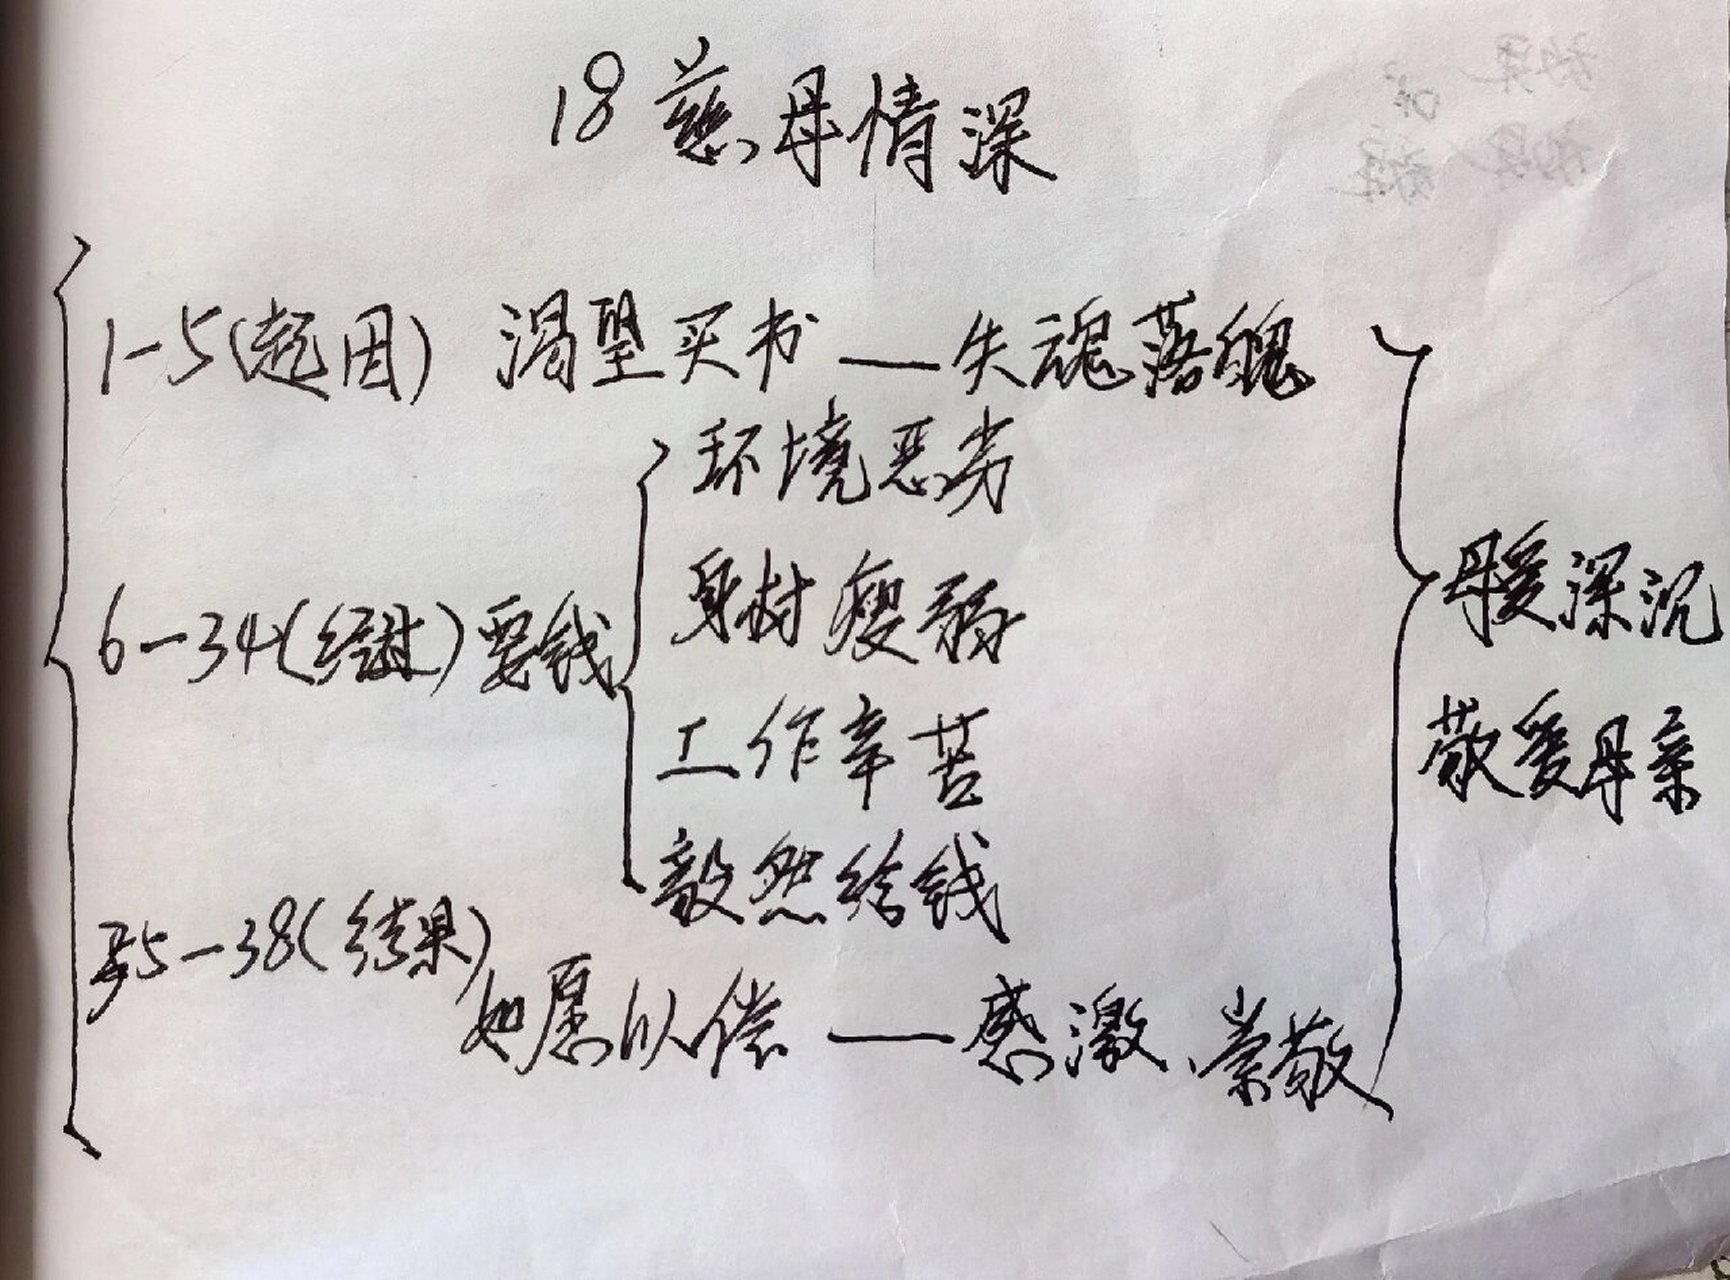 18 慈母情深
1-5(起因) 渴望买书 — 失魂落魄
环境恶劣
身材瘦弱
6-34(经过) 要钱
工作辛苦
毅然给钱
35-38(结果)
如愿以偿 — 感激、崇敬
母爱深沉
敬爱母亲